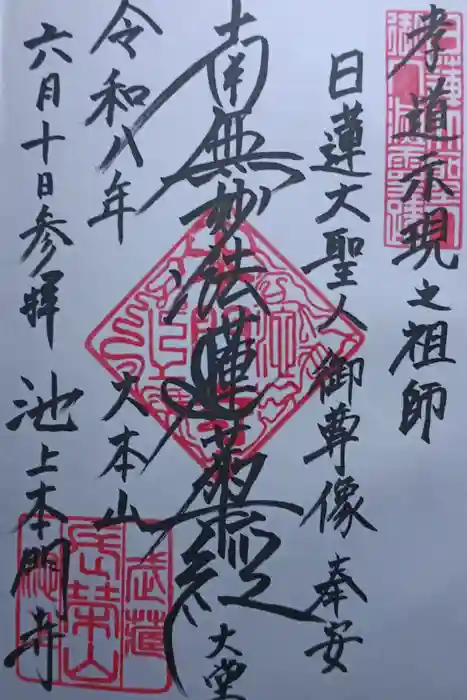 孝道示現之祖師
日蓮大聖人御尊像 奉安
南無妙法蓮華経 大堂
令和八年 大本山
六月十日参拝 池上本門寺